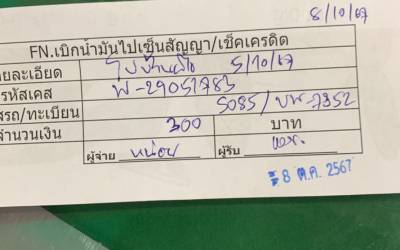 8/10/67
FN.เบิกน้ำมันไปเซ็นสัญญา/เช็คเครดิต
ายละเอียด 5/10/67
รหัสเคส W-29051783
รถ/ทะเบียน 5085/ขพ-7352
จำนวนเงิน 300 บาท
ผู้จ่าย หน่อย ผู้รับ
8 ต.ค. 2567